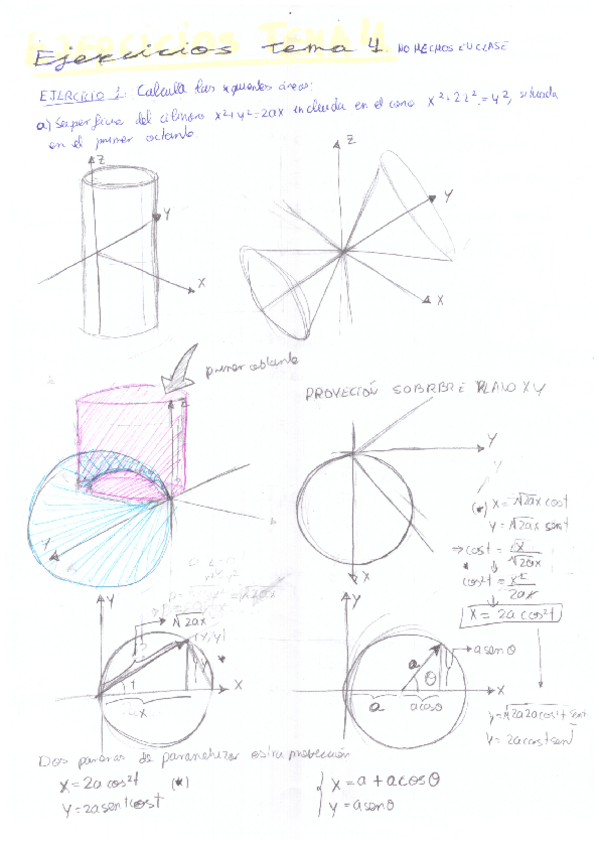 Ejercicios Tema 4. NO HECHOS EN CLASE
EJERCICIO 1. Calcula las siguientes áreas:
a) Superficie del cilindro x²+y²=2ax incluida en el cono x²+2z²=y², situada
en el primer octante.
Z
Y
X
Z
Y
X
primer octante
Z
Y
PROYECCIÓN SOBRBRE PLANO XY
Y
X
(*) X=√2ax cost
Y=√2ax sent
→cost = x/√2ax
cos²t = x²/2ax
X = 2a cos²t
Y
√2ax
(x,y)
y
t
x
X
Y
a
θ
a senθ
a
a cosθ
X
y=√2a2acos²t sent
Y=2acost sent
Dos maneras de parametrizar esta proyección
X=2a cos²t (*)
Y=2a sent cost
X=a+a cosθ
Y=a senθ